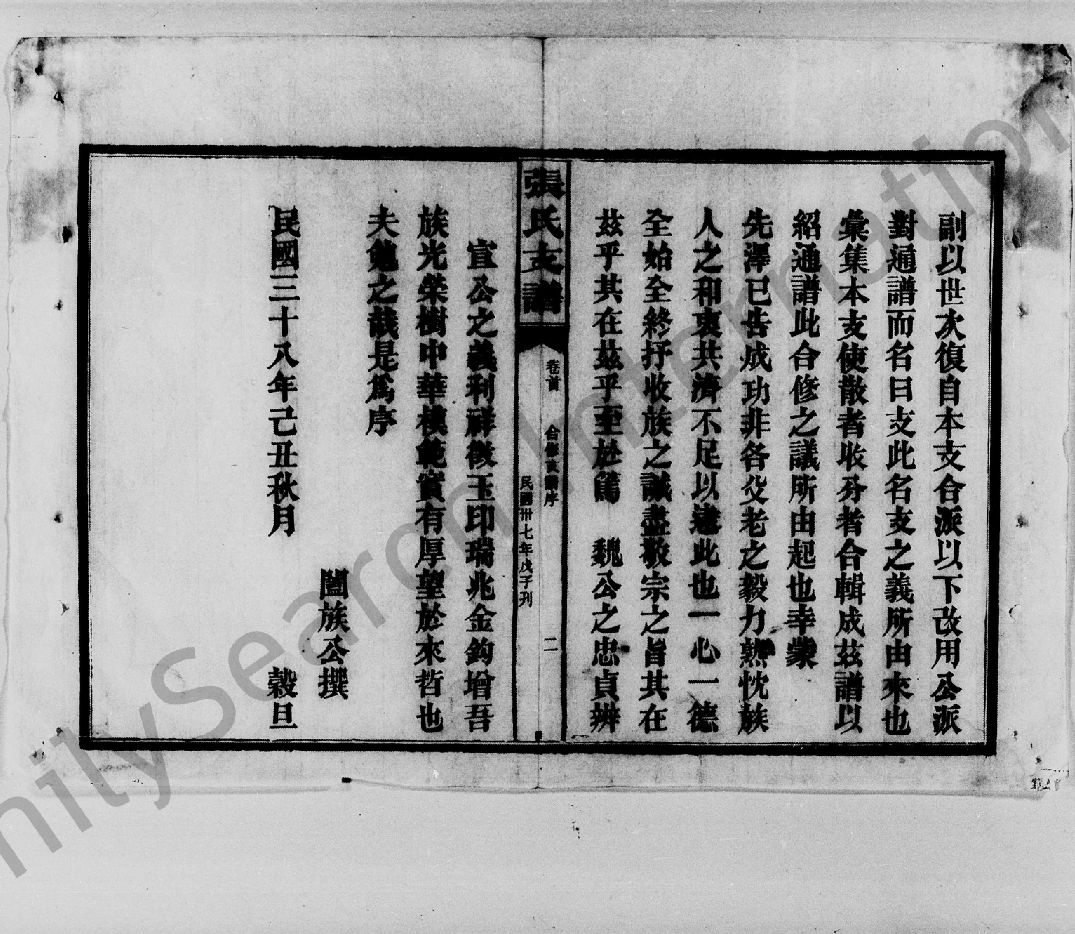 副以世次復自本支合派以下改用公派
對通譜而名曰支此名支之義所由來也
彙集本支使散者收分者合輯成茲譜以
紹通譜此合修之議所由起也幸蒙
先澤已告成功非各父老之毅力熱忱族
人之和衷共濟不足以逮此也一心一德
全始全終抒收族之誠盡敬宗之旨其在
茲乎其在茲乎至於篤 魏公之忠貞辨
張氏支譜
卷首 合修支譜序 二
民國卅七年戊子刋
宣公之義利祥徵玉印瑞兆金鈎增吾
族光榮樹中華模範實有厚望於來哲也
夫勉之哉是爲序
闔族公撰
民國三十八年己丑秋月 穀旦
FamilySearch International